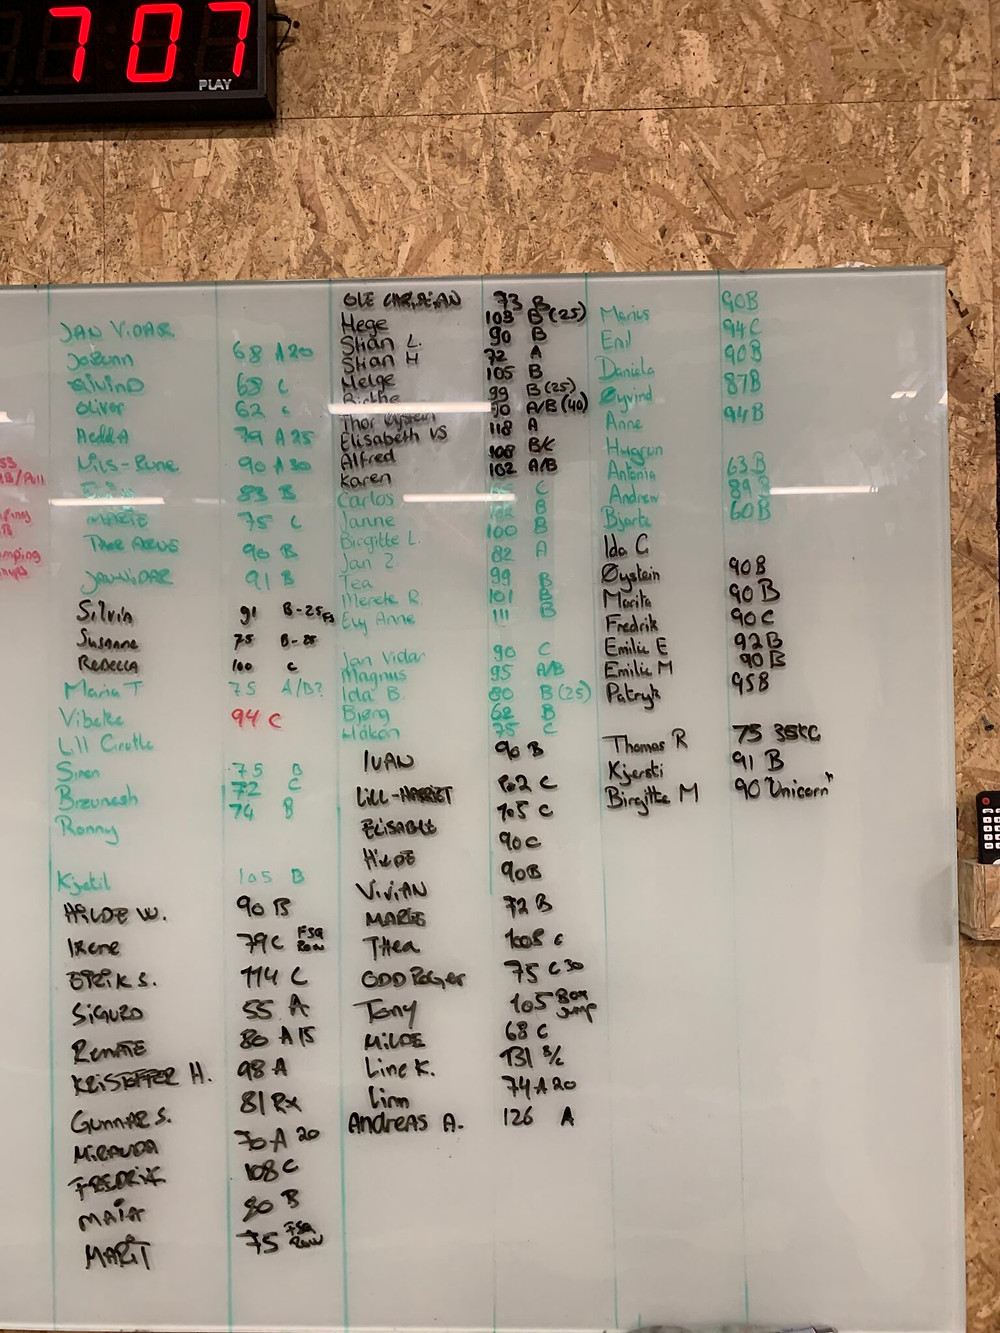 707
PLAY
JAN VIDAR
Jorunn 68 A 20
EIVIND 68 C
Oliver 62 C
Hedda 79 A 25
Nils-Rune 90 A 30
83 B
MARIE 75 C
90 B
JAN VIDAR 91 B
Silvia 91 B-25
Susanne 75 B-25
REBECCA 100 C
Maria T 75 A/B?
Vibeke 94 C
Lill Cecilie
Siren 75 B
Brzunesh 72 C
Ronny 74 B
Kjetil 105 B
HILDE W. 90 B
Irene 79 C FSQ Row
ERIK S. 114 C
SIGURD 55 A
RENATE 80 A 15
KRISTOFFER H. 98 A
GUNNAR S. 81 Rx
MIRANDA 70 A 20
FREDRIK 108 C
MAIA 80 B
MARIT 75 FSQ Row
OLE CHRISTIAN 73 B
Hege 103 B (25)
Stian L. 90 B
Stian H 72 A
Helge 105 B
Birthe 99 B (25)
Thor Øystein 90 A/B (40)
Elisabeth VS 118 A
Alfred 108 B/C
Karen 102 A/B
Carlos C
Janne B
Birgitte L. 100 B
Jan Z 82 A
Tea 99 B
Merete R. 101 B
Ely Anne 111 B
Jan Vidar 90 C
Magnus 95 A/B
Ida B. 80 B (25)
Bjørg 62 B
Håkon 75 C
IVAN 90 B
LILL-HARRIET 102 C
ELISABETH 105 C
HILDE 90 C
VIVIAN 90 B
MARIE 72 B
THea 108 C
ODD ROGER 75 C 30
Tony 105 Box Jump
MILDE 68 C
Line K. 131 B/C
Linn 74 A 20
Andreas A. 126 A
Marius 90B
Emil 94 C
Daniela 90B
Øyvind 87B
Anne 94B
Hugrun
Antonia 63 B
Andrew 89 B
Bjarte 60 B
Ida C
Øystein 90 B
Marita 90 B
Fredrik 90 C
Emilie E 92 B
Emilie M 90 B
Patryk 95 B
Thomas R 75 35k C
Kjersti 91 B
Birgitte M 90 "Unicorn"